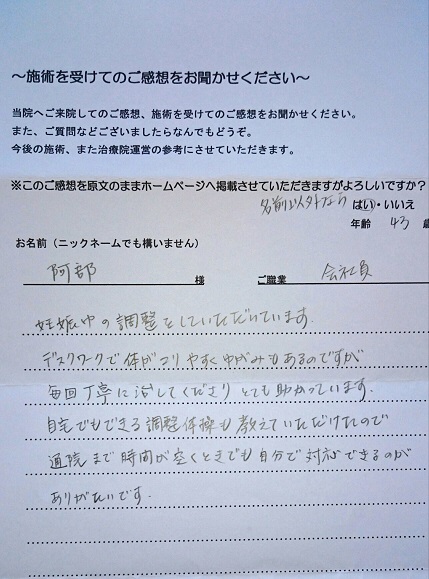 ～施術を受けてのご感想をお聞かせください～
当院へご来院してのご感想、施術を受けてのご感想をお聞かせください。
また、ご質問などございましたらなんでもどうぞ。
今後の施術、また治療院運営の参考にさせていただきます。
※このご感想を原文のままホームページへ掲載させていただきますがよろしいですか？
名前以外なら はい・いいえ
年齢 43 歳
お名前（ニックネームでも構いません）
阿部 様 ご職業 会社員
妊娠中の調整をしていただいています。
デスクワークで体がつりやすくゆがみもあるのですが
毎回丁寧に治してくださりとても助かっています。
自宅でもできる調整体操も教えていただけたので
通院まで時間が空くときでも自分で対応できるのが
ありがたいです。